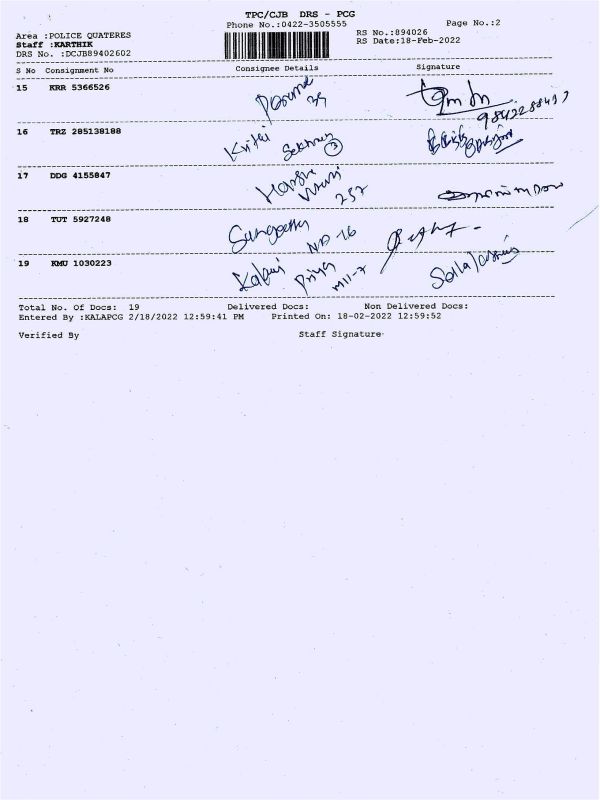 TPC/CJB DRS - PCG
Phone No.:0422-3505555
Page No.:2
Area :POLICE QUATERES
RS No.:894026
Staff :KARTHIK
RS Date:18-Feb-2022
DRS No. :DCJB89402602
S No Consignment No Consignee Details Signature
15 KRR 5366526
9842288497
16 TRZ 285138188 3
17 DDG 4155847 257
18 TUT 5927248 Sangeetha ND-16
19 KMU 1030223 Priya MII-7
Total No. Of Docs: 19 Delivered Docs: Non Delivered Docs:
Entered By :KALAPCG 2/18/2022 12:59:41 PM Printed On: 18-02-2022 12:59:52
Verified By Staff Signature